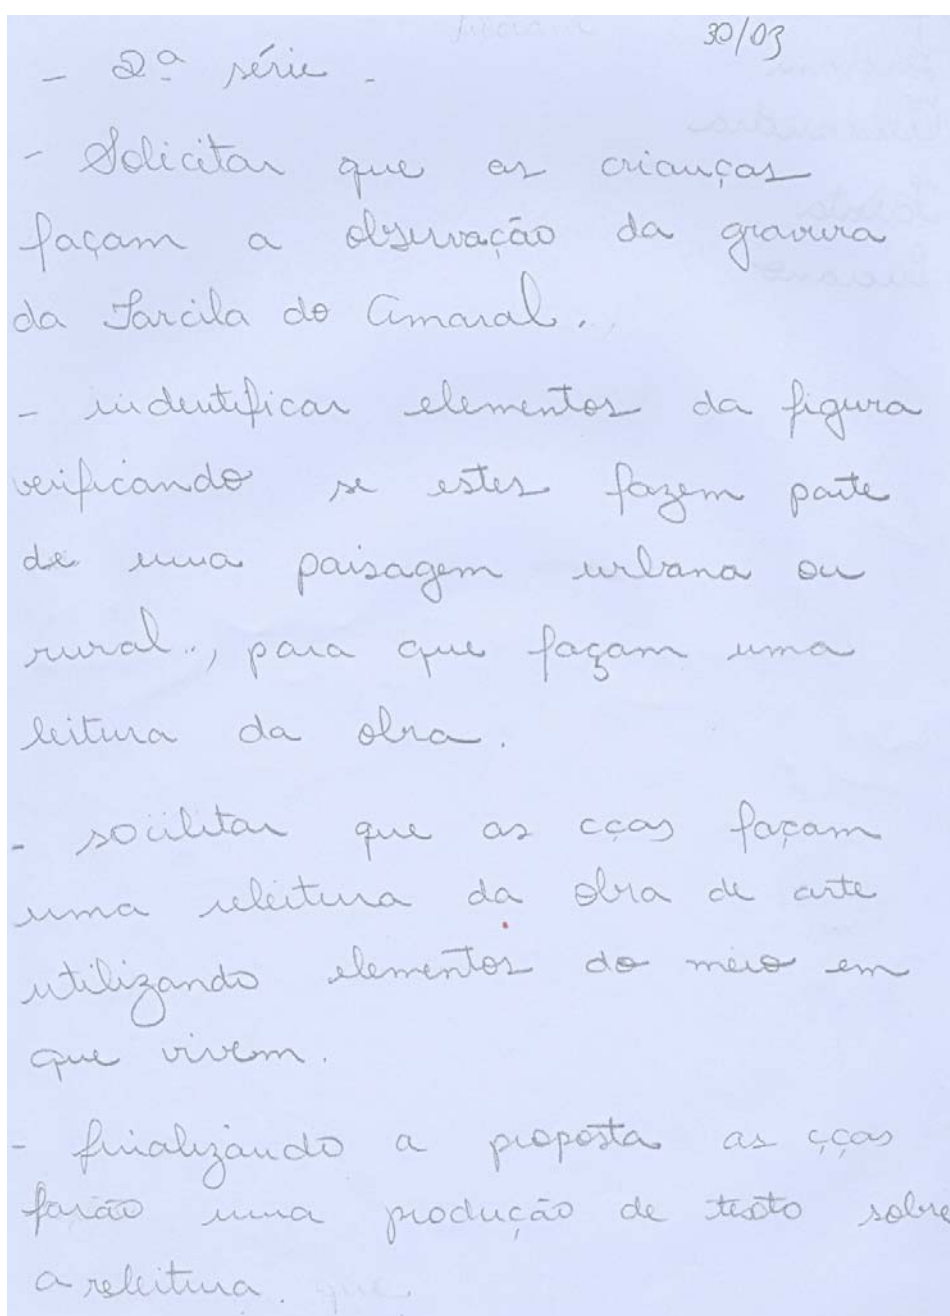 30/03
- 2ª série -
- Solicitar que as crianças
façam a observação da gravura
da Tarcila do Amaral.
- indentificar elementos da figura
verificando se estes fazem parte
de uma paisagem urbana ou
rural., para que façam uma
leitura da obra.
- socilitar que as cças façam
uma releitura da obra de arte
utilizando elementos do meio em
que vivem.
- finalizando a proposta as cças
farão uma produção de texto sobre
a releitura. que